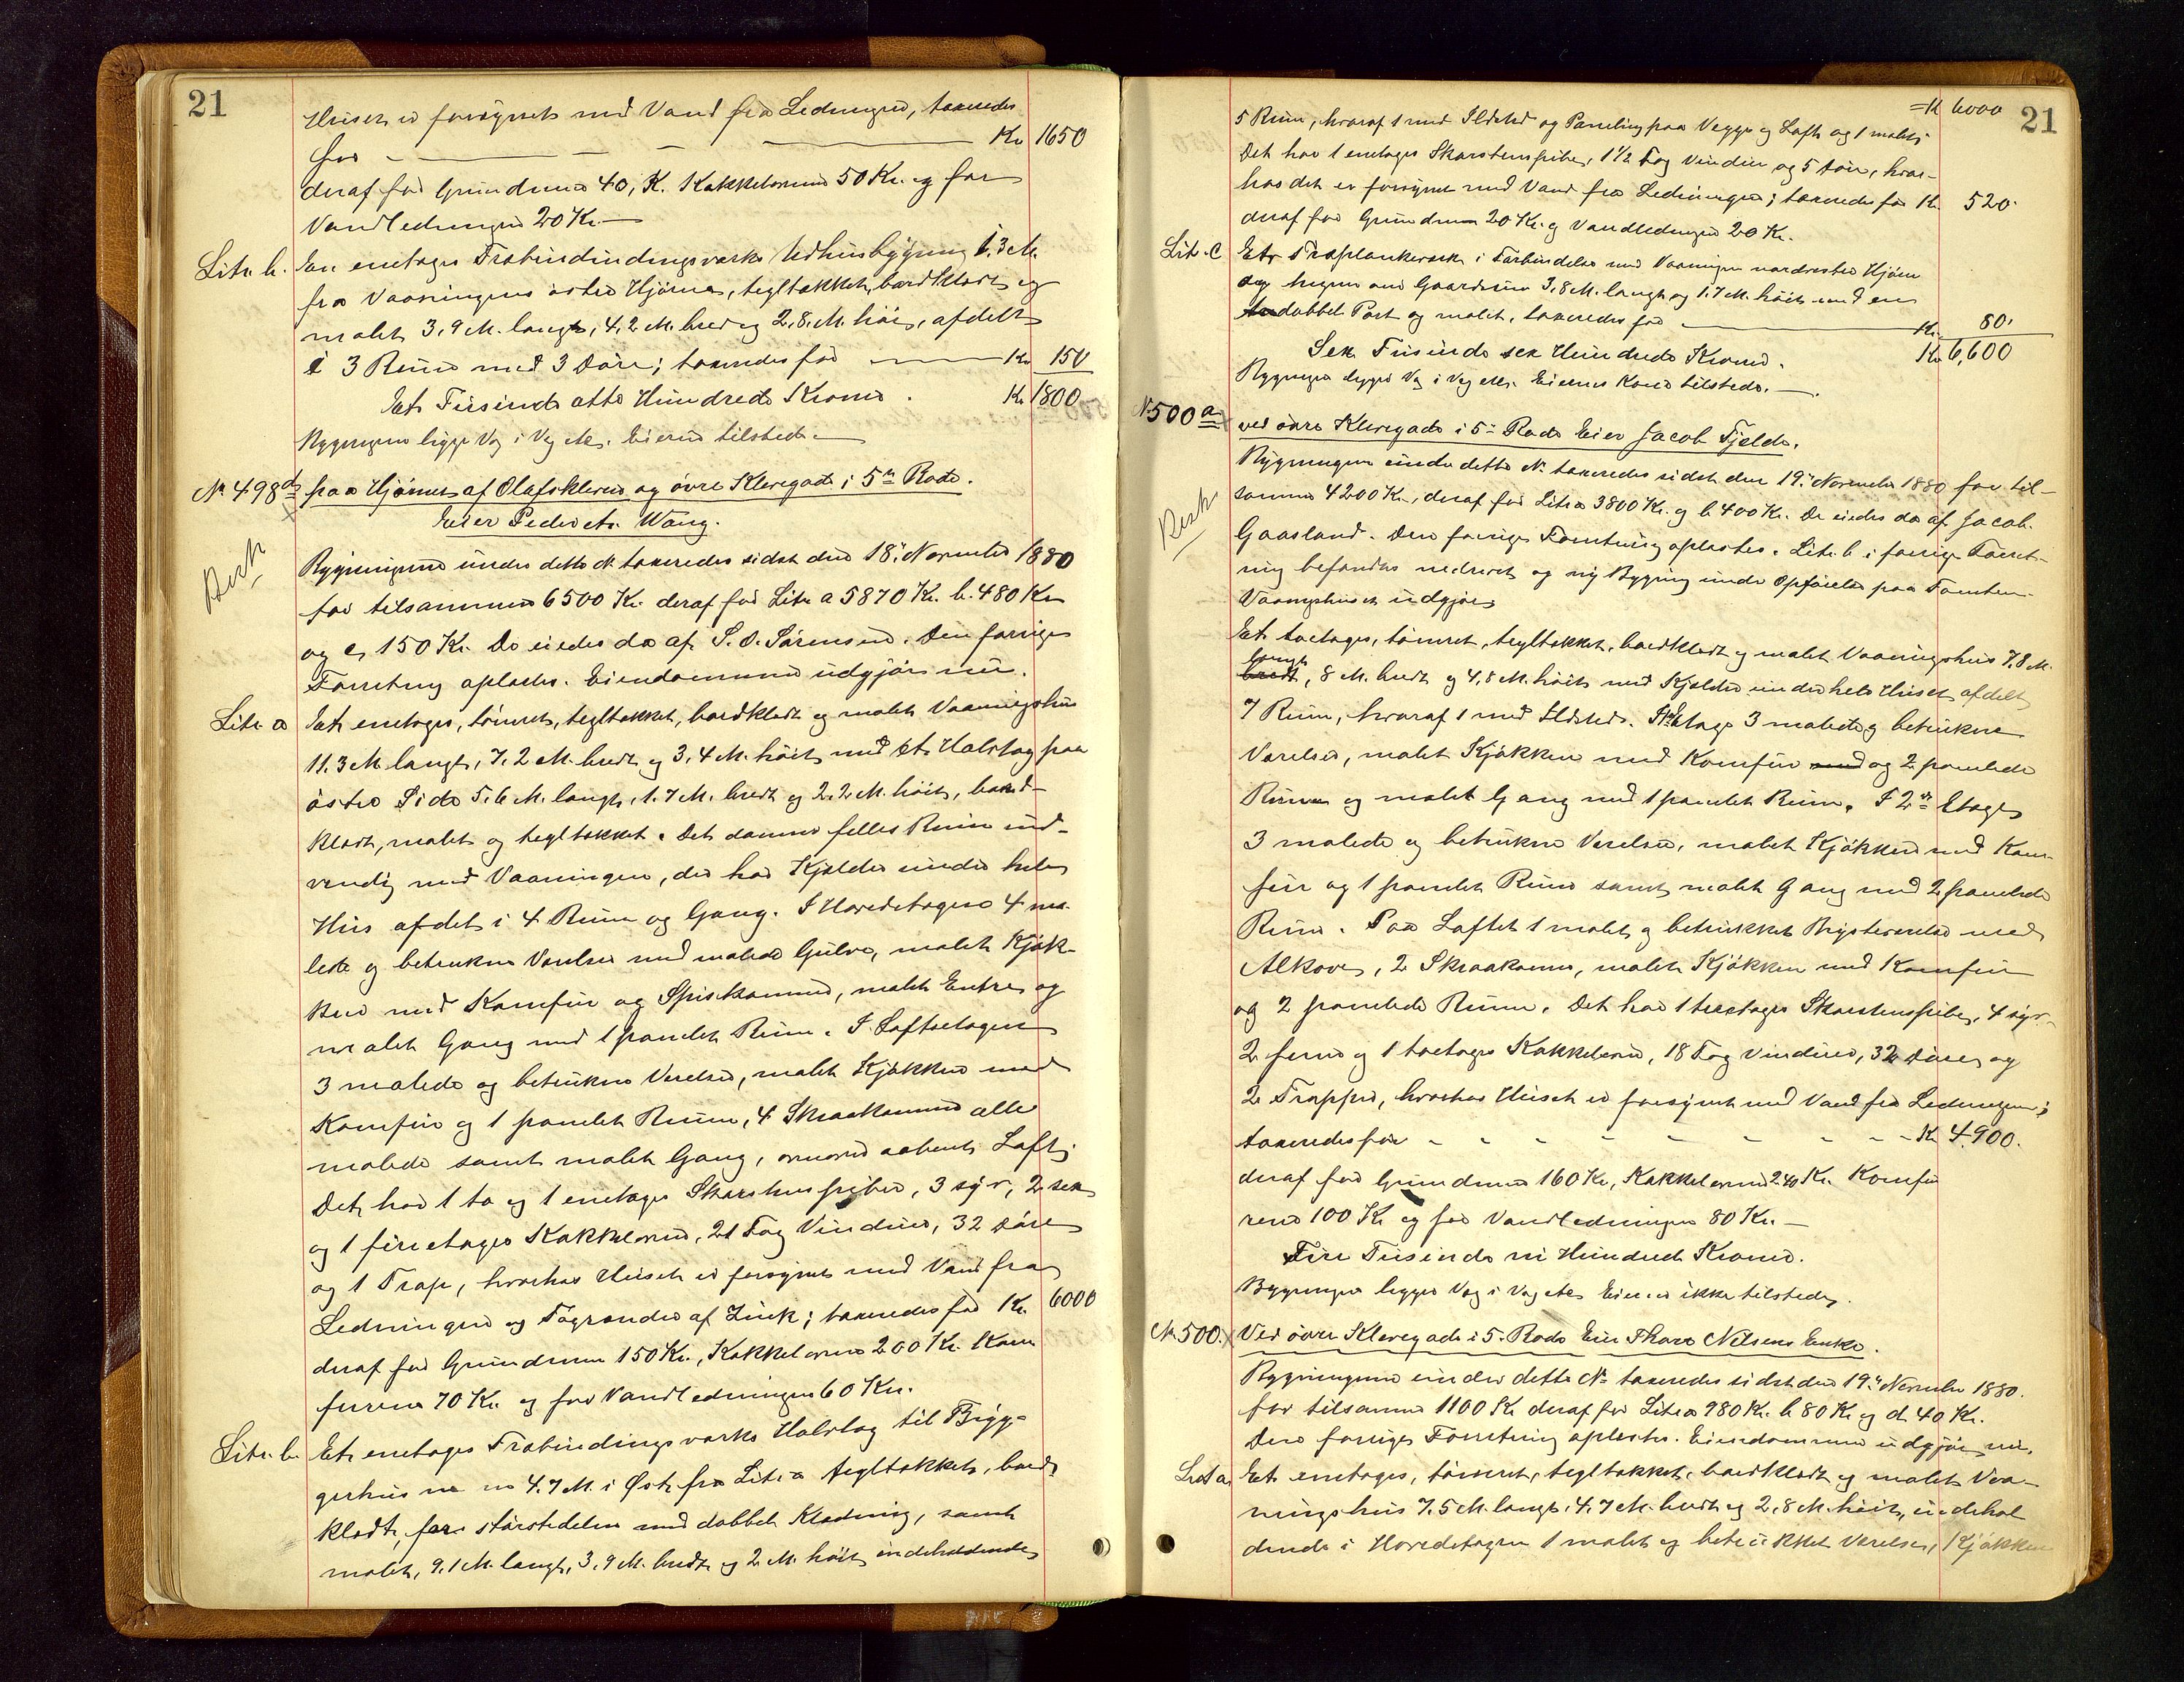 21
Huset er forsynet med Vand fra Ledningen, taxeredes
for - Kr 1650
deraf for Grundmur 40, K. Kakkelovnene 50 Kr. og for
Vandledningen 20 Kr. —
Litr. b. En enetages Træbindingsværks Udhusbygning 1.3 M.
fra Vaaningens østre Hjørne, tegltækket, bordklædt og
malet 3,9 M. langt, 4,2 M. bred og 2,8 M. høit, afdelt
i 3 Rum med 3 Døre; taxeredes for Kr 150
Et Tusinde otte Hundrede Kroner. Kr 1800
Bygningen ligger Væg i Væg etc. Eieren tilstede.
No. 498d paa Hjørnet af Olafskleven og øvre Klevegade i 5te Rode.
Eier Peder M. Wang.
Besk
Bygningerne under dette No. taxeredes sidst den 18. November 1880
for tilsammen 6500 Kr. deraf for Litr a 5870 Kr. b. 480 Kr
og c, 150 Kr. De eiedes da af S. O. Sørensen. Den forrige
Forretning oplæstes. Eiendommen udgjør nu.
Litr. a Et enetages, tømret, tegltækket, bordklædt og malet Vaaningshus
11.3 M langt, 7.2 M. bredt og 3,4 M. høit med et Halvtag paa
østre Side 5.6 M. langt, 1.7 M. bredt og 2.2 M. høit, bord-
klædt, malet og tegltækket. Det danner fælles Rum ind-
vendig med Vaaningen, der har Kjelder under hele
Hus afdelt i 4 Rum og Gang. I Hovedetagen 4 ma-
lede og betrukne Værelser med malede Gulve, malet Kjøk-
ken med Komfur og Spiskammer, malet Entre og
malet Gang med 1 panelet Rum. I Loftsetagen
3 malede og betrukne Værelser, malet Kjøkken med
Komfur og 1 panelet Rum, 4 Skraakammere alle
malede samt malet Gang, ovenover aabent Loft.
Det har 1 to og 1 enetages Skorstenspiber, 3 syv, 2 sex
og 1 fireetages Kakkelovne, 21 Fag Vinduer, 32 Døre
og 1 Trap, hvorhos Huset er forsynet med Vand fra
Ledningen og Tagrender af Zink; taxeredes for Kr. 6000
deraf for Grundmur 150 Kr., Kakkelovne 200 Kr. Kom
furerne 70 Kr. og for Vandledningen 60 Kr.
Litr. b. Et enetages Træbindingsværks Halvtag til Bryg-
gerhus m 4.7 M. i Øst fra Litr a tegltækket, bord
klædt, for størstedelen med dobbelt Klædning, samt
malet, 9.1 M. langt, 3.9 M. bredt og 2 M. høit indeholdende
= K 6000 21
5 Rum, hvoraf 1 med Ildsted og Paneling paa Vægge og Loft og 1 malet.
Det har 1 enetages Skorstenspibe, 1½ Fag Vinduer og 5 Døre, hvor-
hos det er forsynet med Vand fra Ledningen; taxeredes for Kr. 520.
deraf for Grundmur 20 Kr. og Vandledningen 20 Kr.
Litr. c Et Træplankeværk i Forbindelse med Vaaningens nordvestre Hjørne
og hegner om Gaardsrum 3,8 M. langt og 1.7 M. høit med en
dobbel Port og malet, taxeredes for Kr. 80.
Sex Tusinde sex Hundrede Kroner. Kr 6,600
Bygningen ligger Væg i Væg etc. Eierens Kone tilstede.
No 500 a ved øvre Klevegade i 5te Rode Eier Jacob Fjelde.
Besk
Bygningen under dette No. taxeredes sidst den 19. November 1880 for til-
sammen 4200 Kr., deraf for Litra 3800 Kr. og b 400 Kr. De eiedes da af Jacob
Gaasland. Den forrige Forretning oplæstes. Litr. b i forrige Forret-
ning befandtes nedrevet og ny Bygning under Opførelse paa Tomten.
Vaaningshuset udgjør
Et toetages, tømret, tegltækket, bordklædt og malet Vaaningshus 7,8 M.
langt bredt, 8 M. bredt og 4,8 M. høit med Kjelder under hele Huset afdelt
7 Rum, hvoraf 1 med Ildsted. 1ste Etage 3 malede og betrukne
Værelser, malet Kjøkken med Komfur med og 2 panelede
Rum og malet Gang med 1 panelet Rum. I 2den Etage
3 malede og betrukne Værelser, malet Kjøkken med Kom-
fur og 1 panelet Rum samt malet Gang med 2 panelede
Rum. Paa Loftet 1 malet og betrukket Kvistværelse med
Alkove, 2 Skraakamre, malet Kjøkken med Komfur
og 2 panelede Rum. Det har 1 treetages Skorstenspibe, 4 syv-
2 fem og 1 toetages Kakkelovne, 18 Fag Vinduer, 32 Døre og
2 Trapper, hvorhos Huset er forsynet med Vand fra Ledningen;
taxeredes for - - - - - - - - Kr 4.900.
deraf for Grundmur 160 Kr, Kakkelovne 240 Kr. Komfu
rene 100 Kr og for Vandledningen 80 Kr. —
Fire Tusinde ni Hundrede Kroner.
Bygningen ligger Væg i Væg etc. Eieren ikke tilstede.
No. 500. Ved øvre Klevegade i 5. Rode Eier Thore Nilsens Enke.
Bygningerne under dette No taxeredes sidst den 19. November 1880.
for tilsammen 1100 Kr deraf for Litr a 980 Kr. b 80 Kr og d 40 Kr.
Den forrige Forretning oplæstes. Eiendommen udgjør nu.
Litr a. Et enetages, tømret, tegltækket, bordklædt og malet Vaa-
ningshus 7.5 M. langt, 4.7 M. bredt og 2.8 M. høit, indehol
dende i Hovedetagen 1 malet og betrukket Værelse, Kjøkken